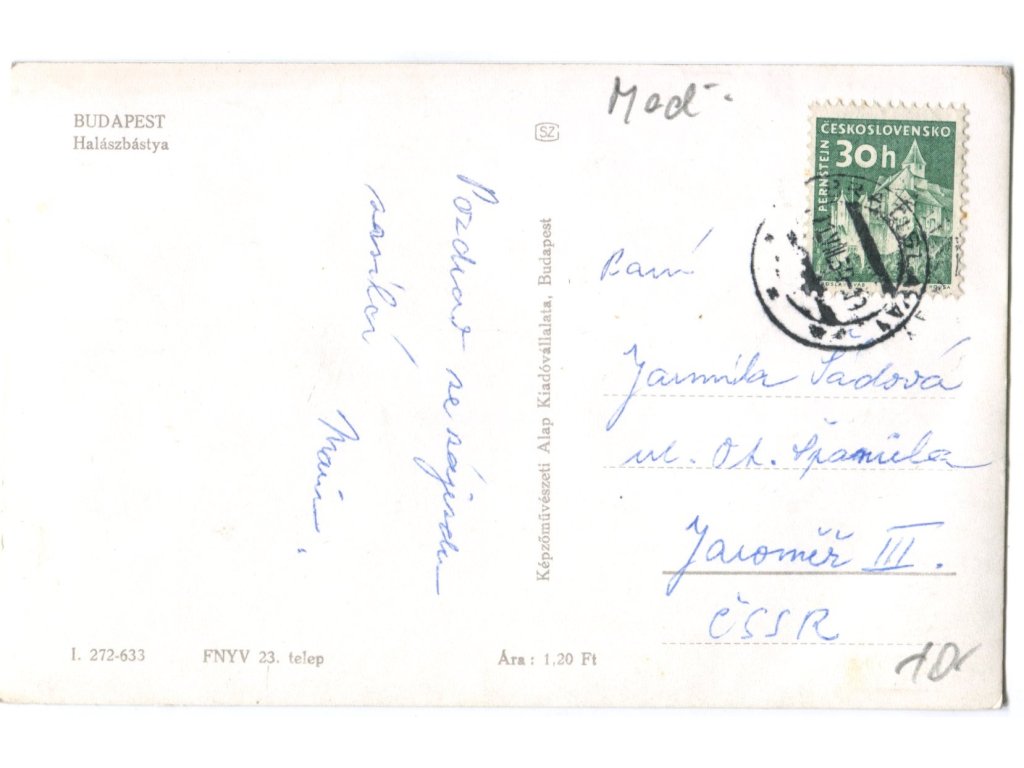 BUDAPEST
Halászbástya
SZ
Mad.
ČESKOSLOVENSKO
30h
PERNŠTEJN
Pozdrav se
Marie.
Képzőművészeti Alap Kiadóvállalata, Budapest
Paní
Jarmila Sádová
ul. Ot. Španiela
Jaroměř III.
ČSSR
I. 272-633
FNYV 23. telep
Ára: 1,20 Ft
10